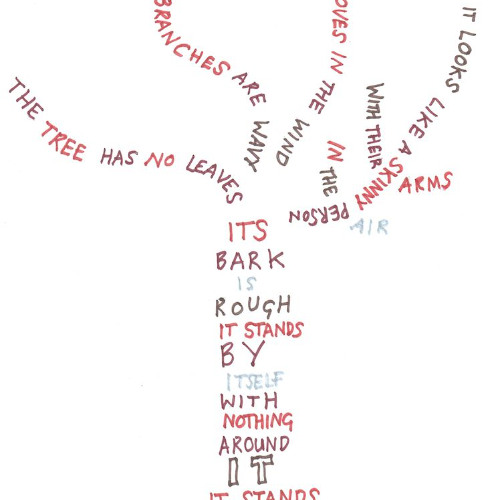 THE TREE HAS NO LEAVES
BRANCHES ARE WAVY
OVES IN THE WIND
IT LOOKS LIKE A SKINNY PERSON
WITH THEIR ARMS
IN THE AIR
ITS
BARK
IS
ROUGH
IT STANDS
BY
ITSELF
WITH
NOTHING
AROUND
IT
IT STANDS